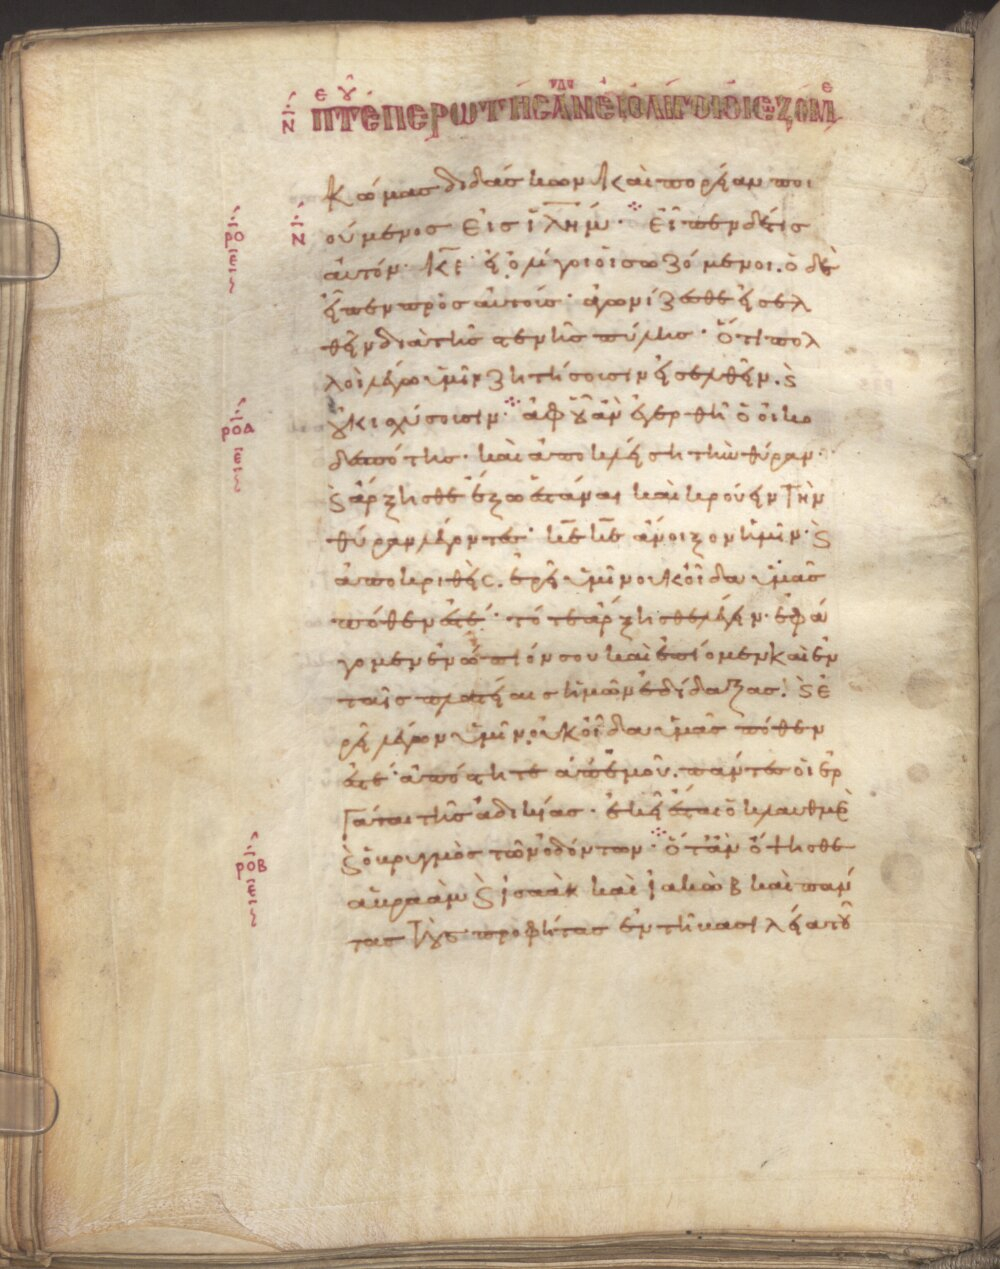 κώμας διδάσκων καὶ πορείαν ποι
ούμενος εἰς ἰλημ· εἶπεν δέ τις
αὐτόν· κε εἰ ὀλίγοι οἱ σωζόμενοι. ὁ δὲ
εἶπεν πρὸς αὐτούς· ἀγωνίζεσθε εἰσελ
θεῖν διὰ τῆς στενῆς πύλης· ὅτι πολ
λοὶ λέγω ὑμῖν ζητήσουσιν εἰσελθεῖν. ϗ
οὐκ ισχύσουσιν· ἀφ οὗ ἂν ἐγερθῇ ὁ οἰκο
δεσπότης· καὶ ἀποκλείσῃ τὴν θύραν·
ϗ ἄρξησθε ἔξω ἑστάναι καὶ κρούειν τὴν
θύραν λέγοντες· κε κε ἄνοιξον ἡμῖν· ϗ
ἀποκριθεὶς. ἐρεῖ ὑμῖν οὐκ οἶδα ὑμᾶς
πόθεν ἐστέ· τότε ἄρξησθε λέγειν· ἐφά
γομεν ἐνώπιόν σου καὶ ἐπίομεν καὶ ἐν
ταῖς πλατείαις ἡμῶν ἐδίδαξας. ϗ ἐ
ρεῖ λέγων ὑμῖν οὐκ οἶδα ὑμᾶς πόθεν
ἐστέ· ἀπόστητε ἀπ ἐμοῦ. πάντες οἱ ἐρ
γάται τῆς ἀδικίας· ἐκεῖ ἔσται ὁ κλαυθμὸς
ϗ ὁ βρυγμὸς τῶν ὀδόντων· ὅταν ὄψησθε
αβραὰμ ϗ ἰσαὰκ καὶ ἰακὼβ καὶ πάν
τας τοὺς προφήτας ἐν τῇ βασιλείᾳ τοῦ